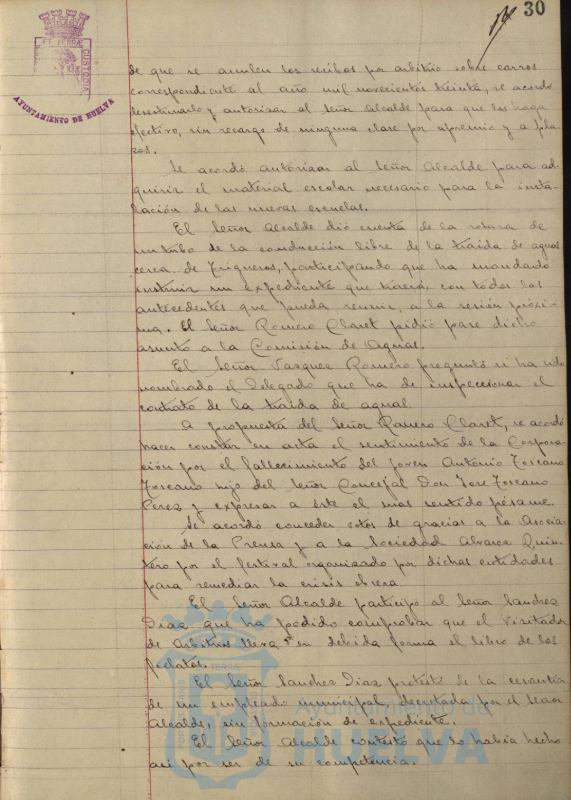 30
PORTUS MARIS ET TERRÆ CUSTODIA
AYUNTAMIENTO DE HUELVA
de que se anulen los recibos por arbitrio sobre carros
correspondiente al año mil novecientos treinta, se acordó
desestimarlo y autorizar al Señor Alcalde para que los haga
efectivo, sin recargo de ninguna clase por apremio y a pla-
zos.
Se acordó autorizar al Señor Alcalde para ad-
quirir el material escolar necesario para la insta-
lación de las nuevas escuelas.
El Señor Alcalde dió cuenta de la rotura de
un tubo de la conducción libre de la traida de aguas
cerca de Trigueros, participando que ha mandado
instruir un expediente que traerá, con todos los
antecedentes que pueda reunir, a la sesión próxi-
ma. El Señor Romero Claret pidió pase dicho
asunto a la Comisión de Aguas.
El Señor Vazquez Romero preguntó si ha sido
nombrado el Delegado que ha de inspeccionar el
contrato de la traida de aguas.
A propuesta del Señor Romero Claret, se acordó
hacer constar en acta el sentimiento de la Corpor-
ación por el fallecimiento del joven Antonio Toscano
Toscano hijo del Señor Concejal Don Jose Toscano
Perez y expresar a éste el mas sentido pésame.
Se acordó conceder votos de gracias a la Asocia-
ción de la Prensa y a la Sociedad Alvarez Quin-
tero por el festival organizado por dichas entidades
para remediar la crisis obrera
El Señor Alcalde participó al Señor Sanchez
Diaz que ha podido comprobar que el Visitador
de Arbitrios lleva en debida forma el libro de los
fielatos.
El Señor Sanchez Diaz protestó de la cesantía
de un empleado municipal, decretada por el Señor
Alcalde, sin formación de expediente.
El Señor Alcalde contestó que lo había hecho
asi por ser de su competencia.
Ayuntamiento de
HUELVA